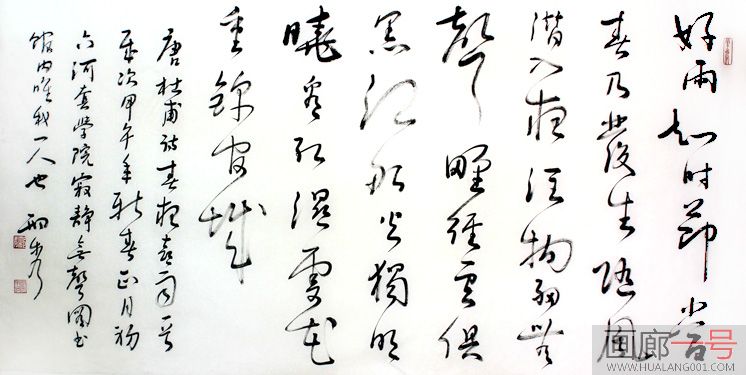 好雨知时節当
春乃發生随風
潜入夜潤物細無
聲野徑雲俱
黑江船火獨明
曉看紅濕處花
重錦官城
唐杜甫詩春夜喜雨一首
歲次甲午年新春正月初
六河套學院寂静無聲圖書
館内唯我一人也
画廊一号
WWW.HUALANG001.COM